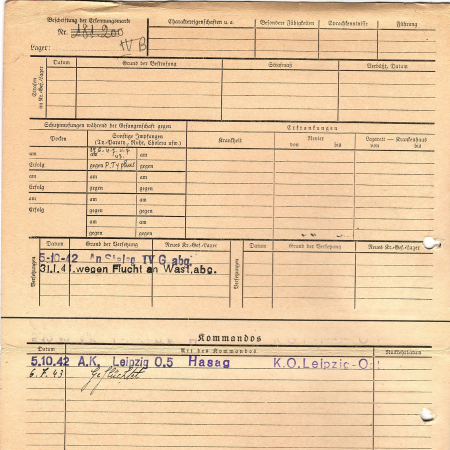 Beschriftung der Erkennungsmarke
Nr. 181.200
Lager: IV B
Charaktereigenschaften u. a.
Besondere Fähigkeiten
Sprachkenntnisse
Führung
Strafen im Kr.-Gef.-Lager
Datum
Grund der Bestrafung
Strafmaß
Verbüßt, Datum
Schutzimpfungen während der Gefangenschaft gegen
Erkrankungen
Pocken
Sonstige Impfungen
(Ty.-Paraty., Ruhr, Cholera usw.)
Krankheit
Revier
von bis
Lazarett — Krankenhaus
von bis
am am am
Erfolg gegen P.Typhus gegen
am am am
Erfolg gegen gegen
am am am
Erfolg gegen gegen
am am
gegen gegen
Versetzungen
Datum Grund der Versetzung Neues Kr.-Gef.-Lager
Versetzungen
Datum Grund der Versetzung Neues Kr.-Gef.-Lager
5-10-42 An Stalag IV G. abg.
wegen Flucht an Wast. abg.
Kommandos
Datum Art des Kommandos Rückkehrdatum
5.10.42 A.K. Leipzig O.5 Hasag K.O. Leipzig-O
6.7.43 Geflüchtet